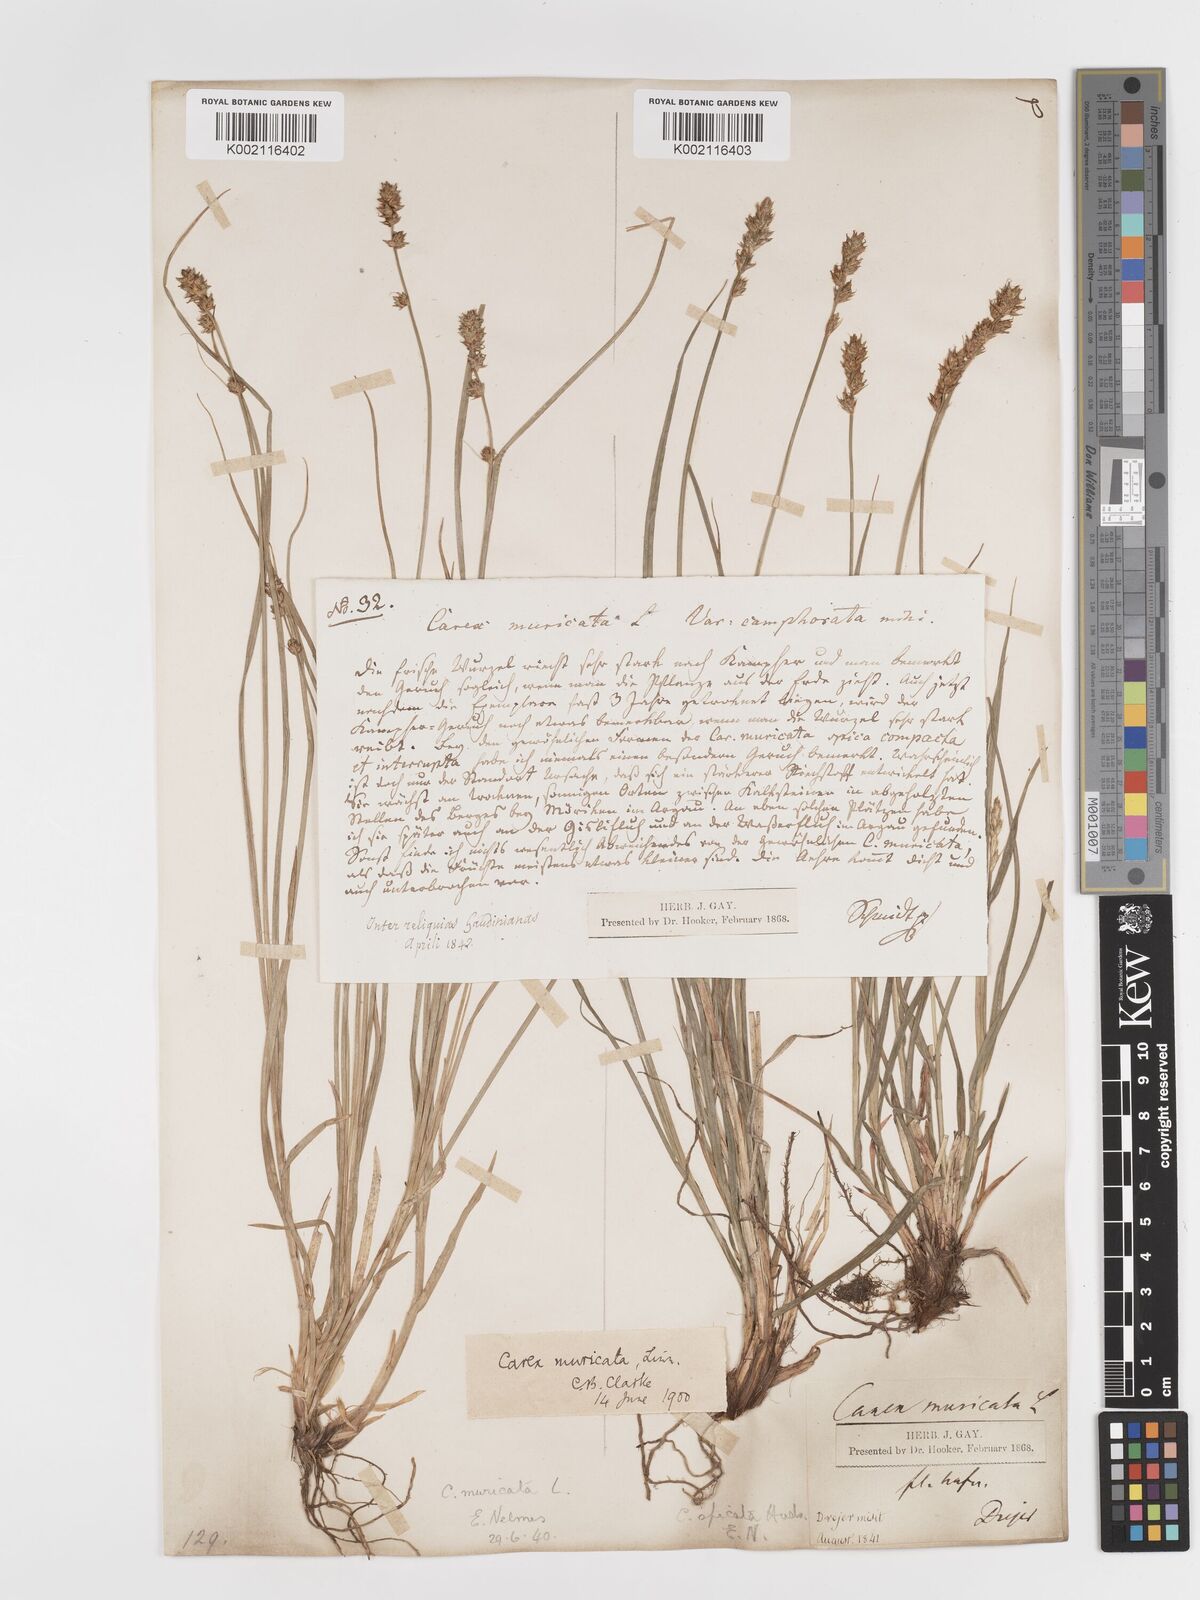 ROYAL BOTANIC GARDENS KEW
K002116402
ROYAL BOTANIC GARDENS KEW
K002116403
No. 32.
Carex muricata L Var: camphorata mihi.
Die frische Wurzel riecht sehr stark nach Kampher und man bemerkt
den Geruch sogleich, wenn man die Pflanze aus der Erde zieht. Auch jetzt
nachdem die Exemplare fast 3 Jahre getrocknet liegen, wird der
Kampher-Geruch noch etwas bemerkbar wenn man die Wurzel sehr stark
reibt. Bey den gewöhnlichen Formen der Car. muricata spica compacta
et interrupta habe ich niemals einen besondern Geruch bemerkt. Wahrscheinlich
ist doch nur der Standort Ursache, daß sich ein stärkerer Riechstoff entwickelt hat.
Sie wächst an trocknen, sonnigen Orten zwischen Kalksteinen in abgeholzten
Stellen des Berges bey Möriken im Aargau. An eben solchen Plätzen habe
ich sie später auch an der Gislifluh und an der Waßerfluh im Aargau gefunden.
Sonst finde ich nichts wesentlich Abweichendes von der gewöhnlichen C. muricata,
als daß die Früchte meistens etwas kleiner sind. Die Aehre kommt dicht und
auch unterbrochen vor.
Inter reliquias Gaudinianas
Aprili 1842
HERB. J. GAY.
Presented by Dr. Hooker, February 1868.
Schmidt
Carex muricata, Linn.
C.B. Clarke
14 June 1900
Carex muricata L
HERB. J. GAY.
Presented by Dr. Hooker, February 1868.
fl. hafn.
Drejer
Drejer misit
August. 1841
C. muricata L.
E. Nelmes
29.6.40.
C. spicata Huds.
E. N.
129.
inches
centimetres
Don Williams
M001007
Kew
Royal Botanic Gardens
copyright reserved
0 1 2 3 4 5 6 7 8 9 10
cm